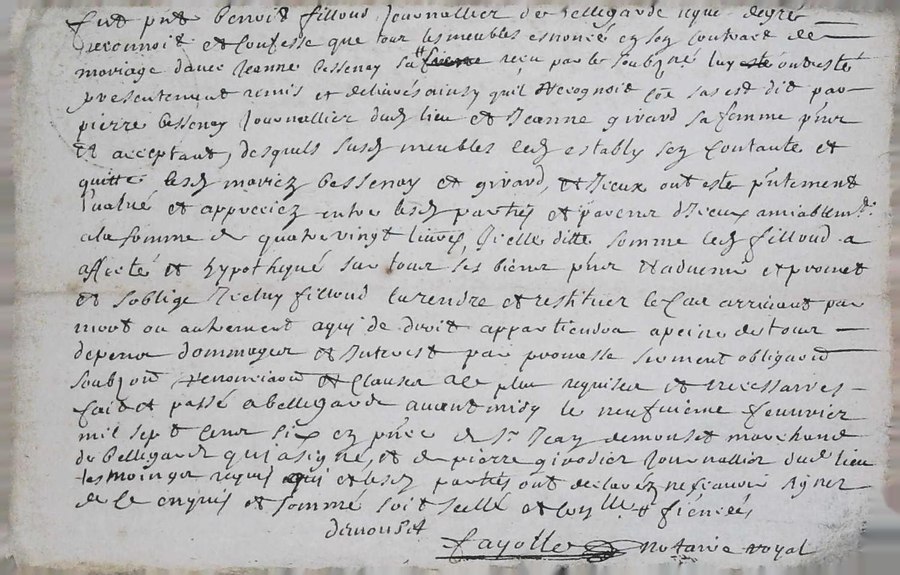 fut pnt Benoit filloud Journallier de Bellegarde lequel degré
reconnoit et Confesse que tous les meubles esnoncé en son Contract de
mariage davec Jeanne Bessenay sa recu par le soubzné luy ont esté
presentement remis et delivres ainsy quil Recognoit par
pierre Bessenay Journallier dud lieu et Jeanne girard sa femme pnts
Et acceptant, desquels susd meubles led estably sen Contante et
quitte lesd mariez Bessenay et girard, Et Iceux ont este pntement
Evalué et appreciez entre lesd parties et par eux diceux amiablemt
a la somme de quatre vingt livres, Icelle ditte somme led filloud a
affecté et hypothequé sur tous ses biens pnts Et advenir et promet
Et soblige Icelluy filloud la rendre et restituer le Cas arrivant par
mort ou autrement a qui de droit appartiendra a peine de tous
depens dommages et Interest par promesse serment obligaôn
soubzôn Renonciaôn Et Clauses a ce plus requises et necessaires
fait et passé a bellegarde avant midy le neufvieme fevrier
mil sept Cens six en pnce de Sr Jean demouset marchand
de Bellegarde qui a signé, et de pierre girodier Journallier dud lieu
tesmoings requis qui et lesd parties ont declarez ne scavoir signer
de ce enquis et sommé soit scellé et
demouset
fayolle notaire royal